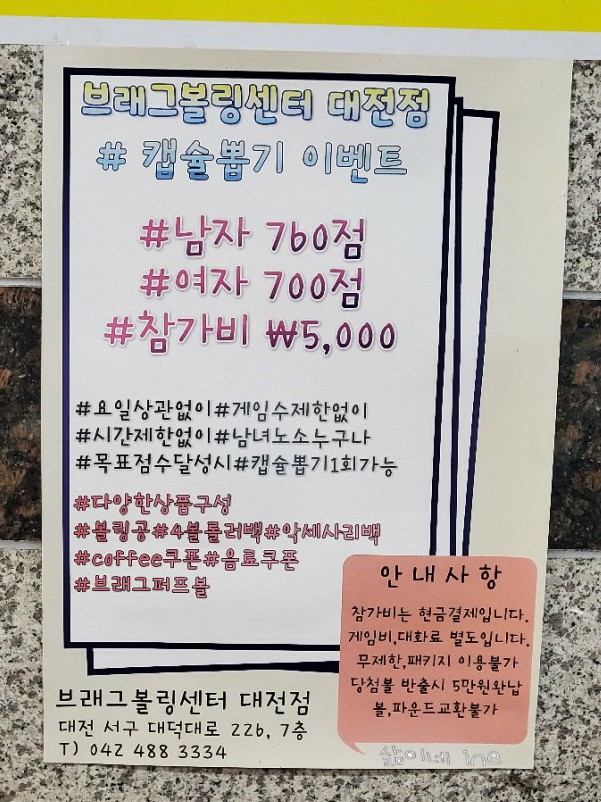 브래그볼링센터 대전점
# 캡슐뽑기 이벤트
#남자 760점
#여자 700점
#참가비 ₩5,000
#요일상관없이#게임수제한없이
#시간제한없이#남녀노소누구나
#목표점수달성시#캡슐뽑기1회가능
#다양한상품구성
#볼링공#4볼롤러백#악세사리백
#coffee쿠폰#음료쿠폰
#브래그퍼프볼
안내사항
참가비는 현금결제입니다.
게임비,대화료 별도입니다.
무제한,패키지 이용불가
당첨볼 반출시 5만원완납
볼,파운드교환불가
브래그볼링센터 대전점
대전 서구 대덕대로 226, 7층
T) 042 488 3334
삶이네 ine